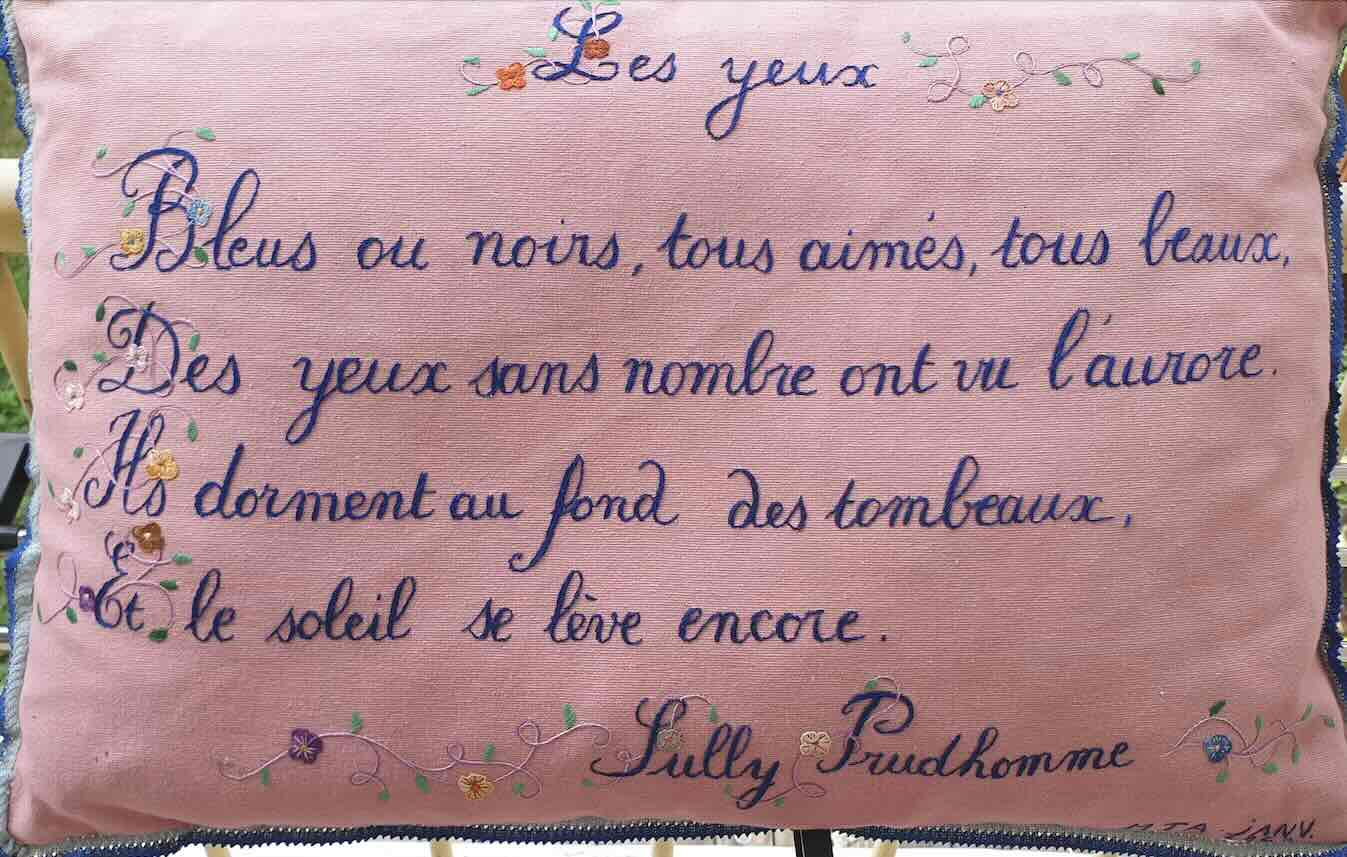 Les yeux
Bleus ou noirs, tous aimés, tous beaux,
Des yeux sans nombre ont vu l'aurore.
Ils dorment au fond des tombeaux,
Et le soleil se lève encore.
Sully Prudhomme
JANV.